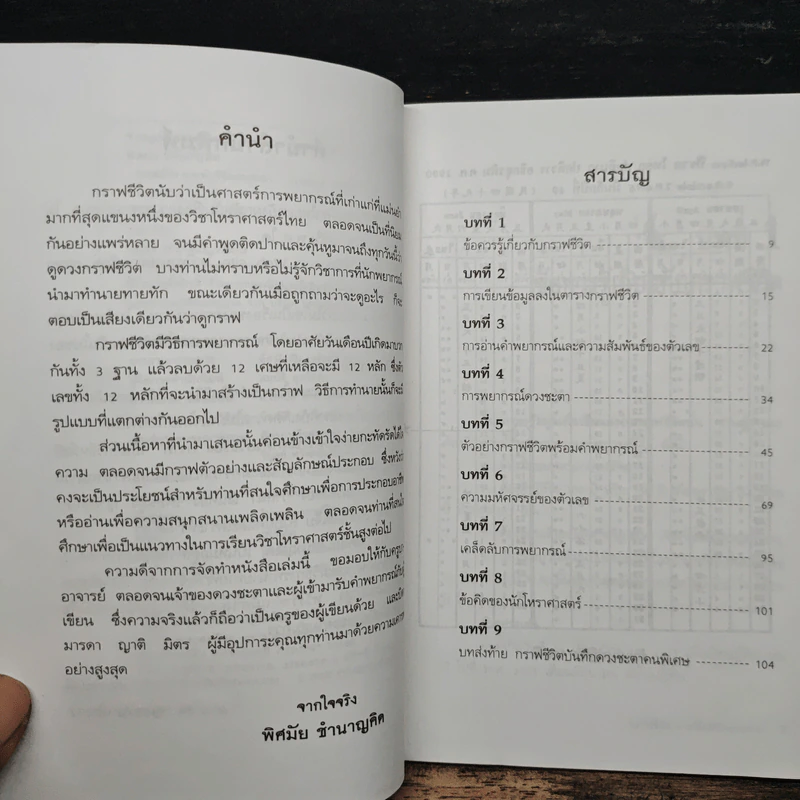 คำนำ
กราฟชีวิตนับว่าเป็นศาสตร์การพยากรณ์ที่เก่าแก่ที่แม่นยำ
มากที่สุดแขนงหนึ่งของวิชาโหราศาสตร์ไทย ตลอดจนเป็นที่นิยม
กันอย่างแพร่หลาย จนมีคำพูดติดปากและคุ้นหูมาจนถึงทุกวันนี้ว่า
ดูดวงกราฟชีวิต บางท่านไม่ทราบหรือไม่รู้จักวิชาการที่นักพยากรณ์
นำมาทำนายทายทัก ขณะเดียวกันเมื่อถูกถามว่าจะดูอะไร ก็จะ
ตอบเป็นเสียงเดียวกันว่าดูกราฟ
กราฟชีวิตมีวิธีการพยากรณ์ โดยอาศัยวันเดือนปีเกิดมาบวก
กันทั้ง 3 ฐาน แล้วลบด้วย 12 เศษที่เหลือจะมี 12 หลัก ซึ่งตัว
เลขทั้ง 12 หลักที่จะนำมาสร้างเป็นกราฟ วิธีการทำนายนั้นก็จะมี
รูปแบบที่แตกต่างกันออกไป
ส่วนเนื้อหาที่นำมาเสนอนั้นค่อนข้างเข้าใจง่ายกะทัดรัดได้ใจ
ความ ตลอดจนมีกราฟตัวอย่างและสัญลักษณ์ประกอบ ซึ่งหวังว่า
คงจะเป็นประโยชน์สำหรับท่านที่สนใจศึกษาเพื่อการประกอบอาชีพ
หรืออ่านเพื่อความสนุกสนานเพลิดเพลิน ตลอดจนท่านที่สนใจ
ศึกษาเพื่อเป็นแนวทางในการเรียนวิชาโหราศาสตร์ชั้นสูงต่อไป
ความดีจากการจัดทำหนังสือเล่มนี้ ขอมอบให้กับครูบา
อาจารย์ ตลอดจนเจ้าของดวงชะตาและผู้เข้ามารับคำพยากรณ์กับผู้
เขียน ซึ่งความจริงแล้วก็ถือว่าเป็นครูของผู้เขียนด้วย และบิดา
มารดา ญาติ มิตร ผู้มีอุปการะคุณทุกท่านมาด้วยความเคารพ
อย่างสูงสุด
จากใจจริง
พิศมัย ชำนาญคิด
สารบัญ
บทที่ 1
ข้อควรรู้เกี่ยวกับกราฟชีวิต 9
บทที่ 2
การเขียนข้อมูลลงในตารางกราฟชีวิต 15
บทที่ 3
การอ่านคำพยากรณ์และความสัมพันธ์ของตัวเลข 22
บทที่ 4
การพยากรณ์ดวงชะตา 34
บทที่ 5
ตัวอย่างกราฟชีวิตพร้อมคำพยากรณ์ 45
บทที่ 6
ความมหัศจรรย์ของตัวเลข 69
บทที่ 7
เคล็ดลับการพยากรณ์ 95
บทที่ 8
ข้อคิดของนักโหราศาสตร์ 101
บทที่ 9
บทส่งท้าย กราฟชีวิตบันทึกดวงชะตาคนพิเศษ 104